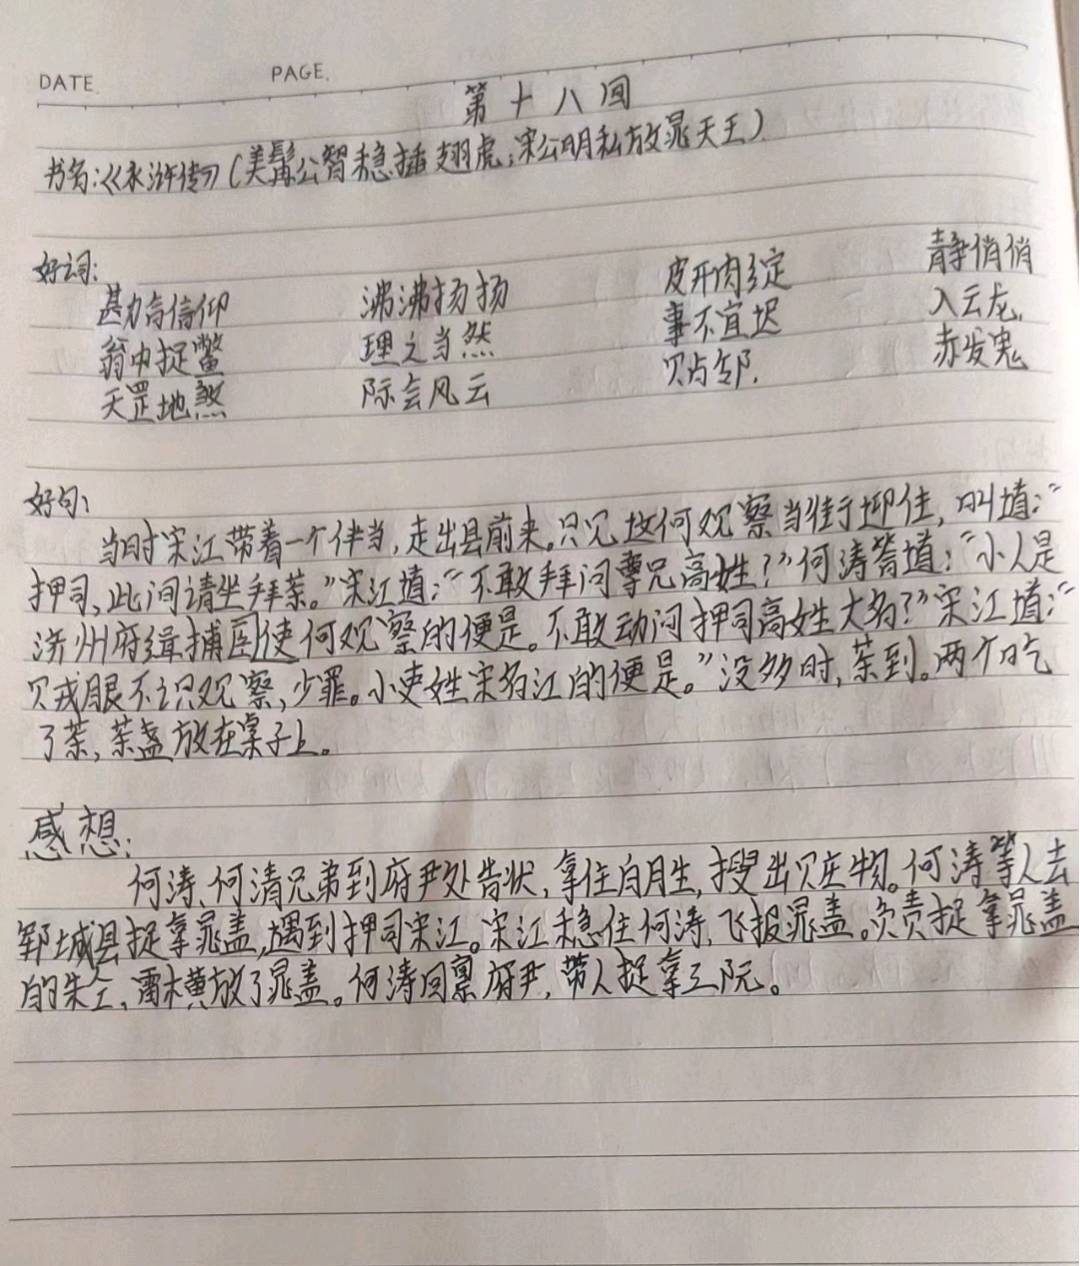 DATE. PAGE.
第十八回
书名:《水浒传》(美髯公智稳插翅虎;宋公明私放晁天王)
好词:
勘高信仰 沸沸扬扬 皮开肉绽 静悄悄
翁中捉鳖 理之当然 事不宜迟 入云龙.
天罡地煞 际会风云 贴邻. 赤发鬼
好句:
当时宋江带着一个伴当,走出县前来。只见这何观察当街迎住,叫道:“
押司,此间请坐拜茶。”宋江道:“不敢拜问尊兄高姓?”何涛答道:“小人是
济州府缉捕臣使何观察的便是。不敢动问押司高姓大名?”宋江道:“
贱眼不识观察,少罪。小吏姓宋名江的便是。”没多时,茶到。两个吃
了茶,茶盏放在桌子上。
感想:
何涛、何清兄弟到府尹处告状,拿住白胜,搜出赃物。何涛等人去
郓城县捉拿晁盖,遇到押司宋江。宋江稳住何涛,飞报晁盖。负责捉拿晁盖
的朱仝、雷横放了晁盖。何涛回禀府尹,带人捉拿三阮。